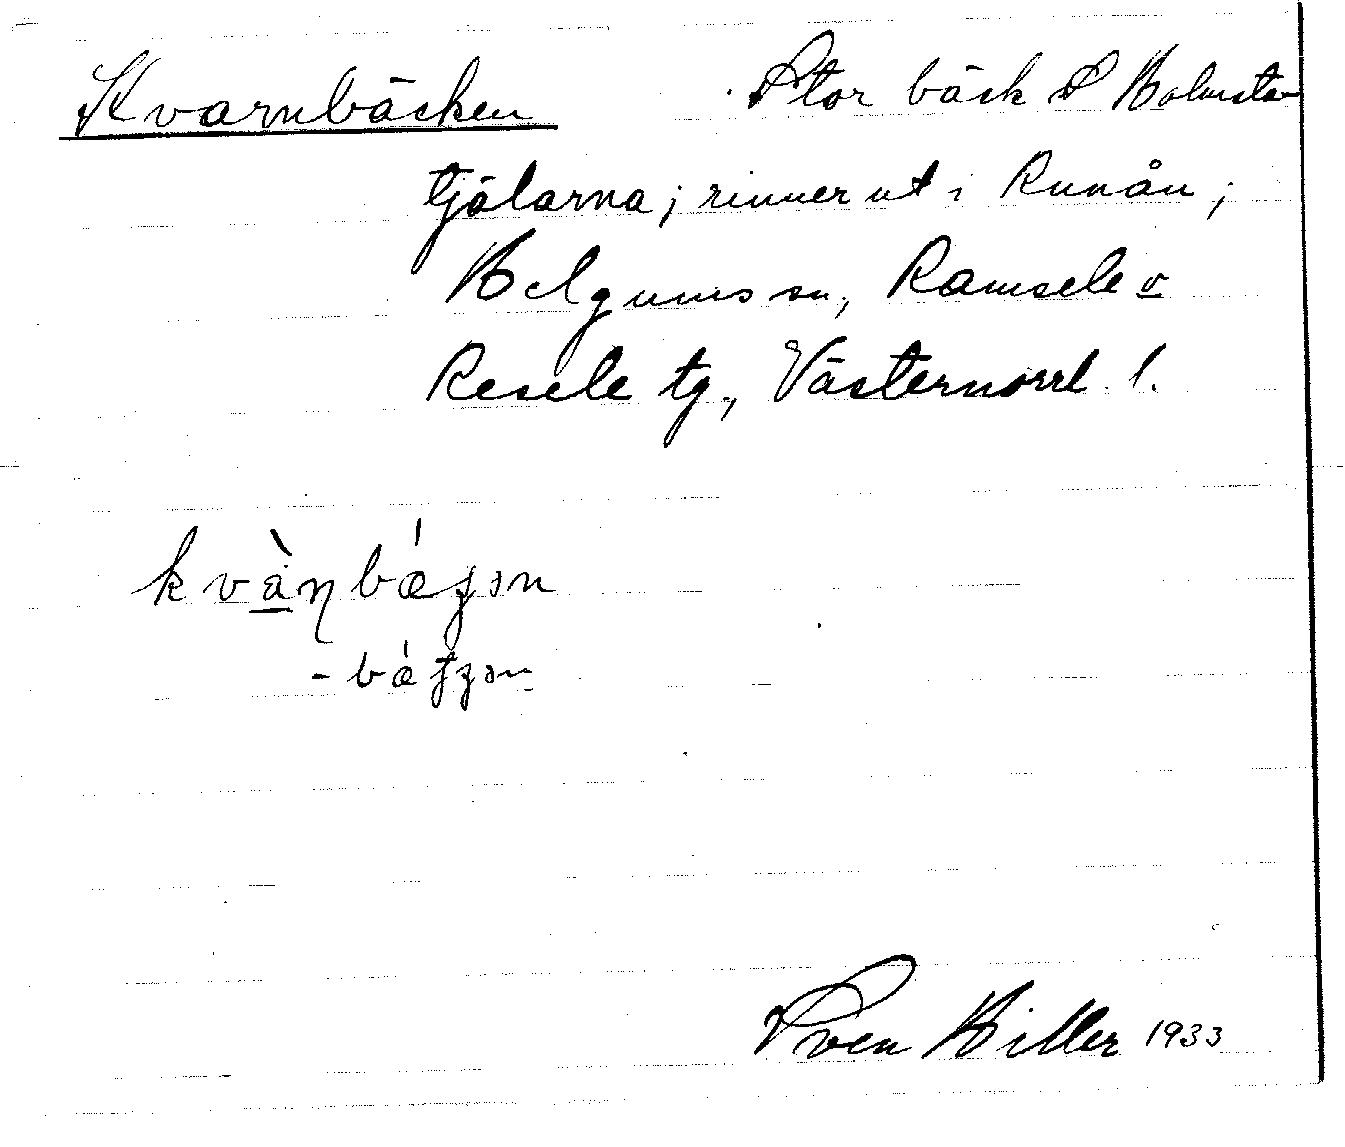 Kvarnbäcken Stor bäck S Holmsta-
tjälarna; rinner ut i Runån;
Helgums sn, Ramsele o
Resele tg, Västernorrl l.
Sven Hiller 1933